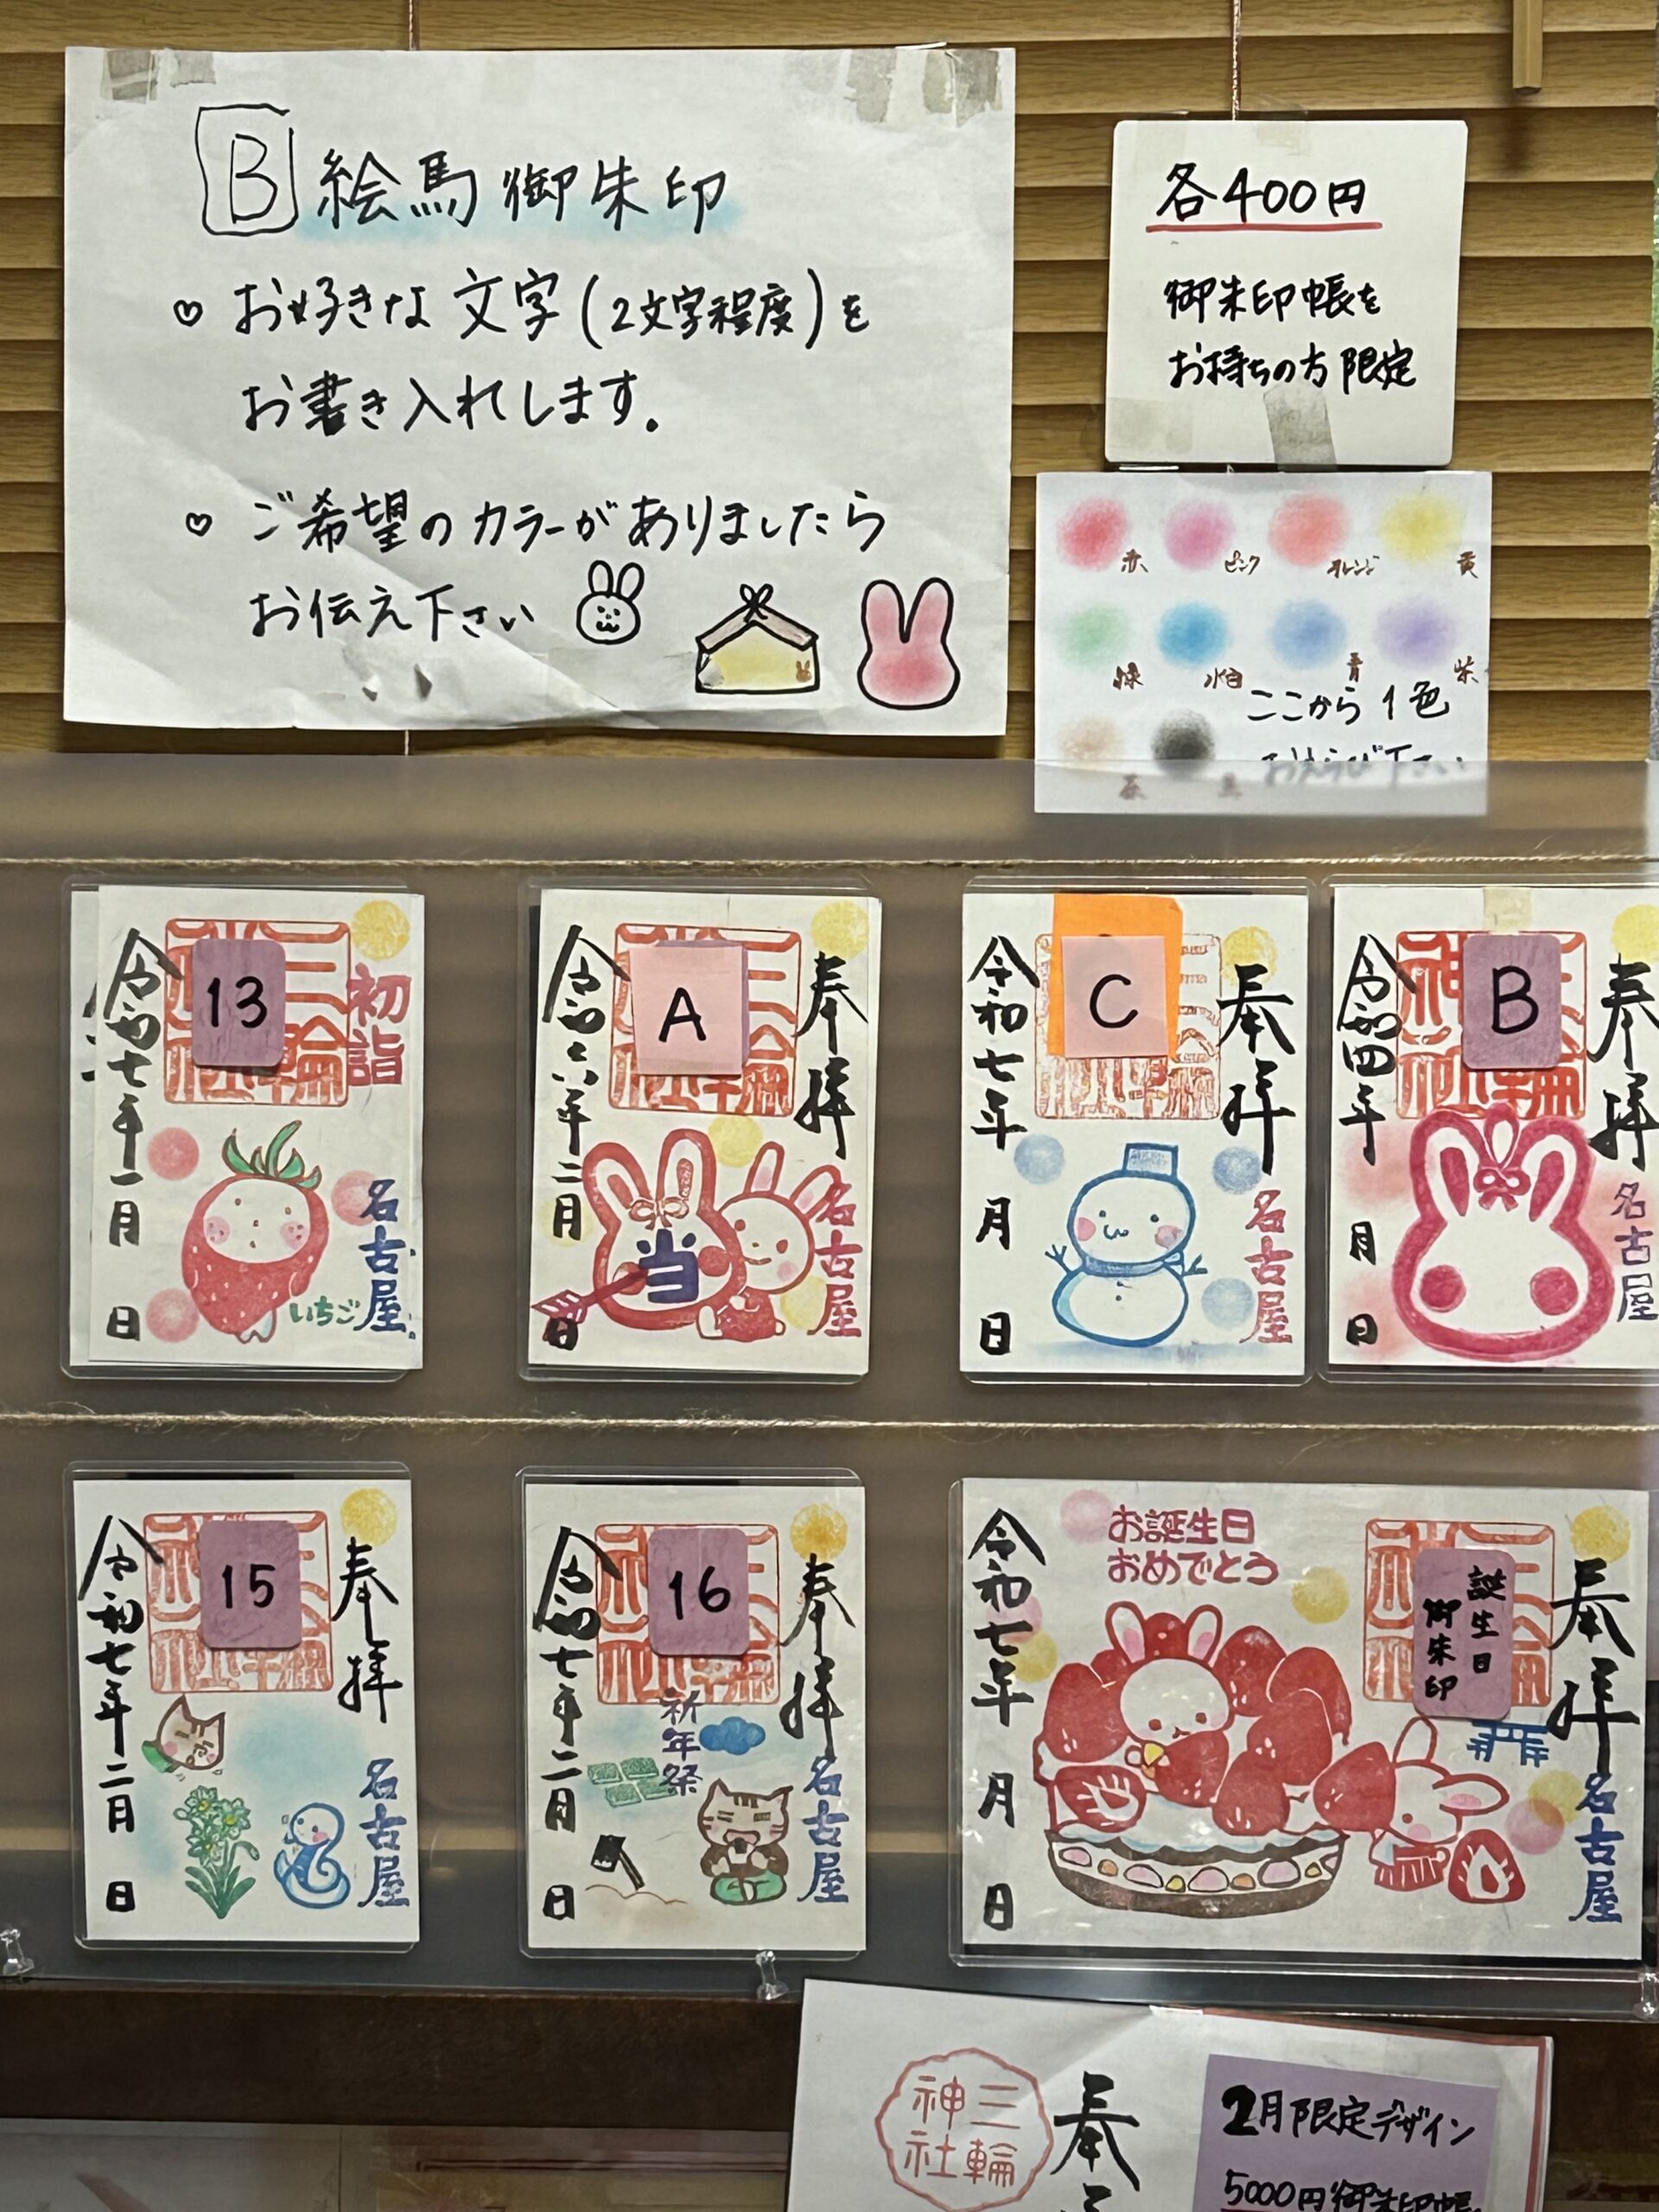 B 絵馬御朱印
♡ お好きな文字(2文字程度)を
お書き入れします.
♡ ご希望のカラーがありましたら
お伝え下さい
各400円
御朱印帳を
お持ちの方限定
赤 ピンク オレンジ 黄
緑 水色 青 紫
ここから1色
おえらび下さい
13
初詣
令和七年一月 日
名古屋
いちご
A
奉拝
令和六年二月 日
当
名古屋
C
奉拝
令和七年 月 日
名古屋
B
奉拝
令和四年 月 日
名古屋
15
奉拝
令和七年二月 日
名古屋
16
奉拝
祈年祭
令和七年二月 日
名古屋
お誕生日
おめでとう
誕生日
御朱印
奉拝
令和七年 月 日
名古屋
三輪
神社
奉
2月限定デザイン
5000円御朱印帳